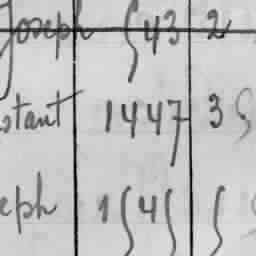 Joseph 543 2
stant 1447 35
eph 1545 5